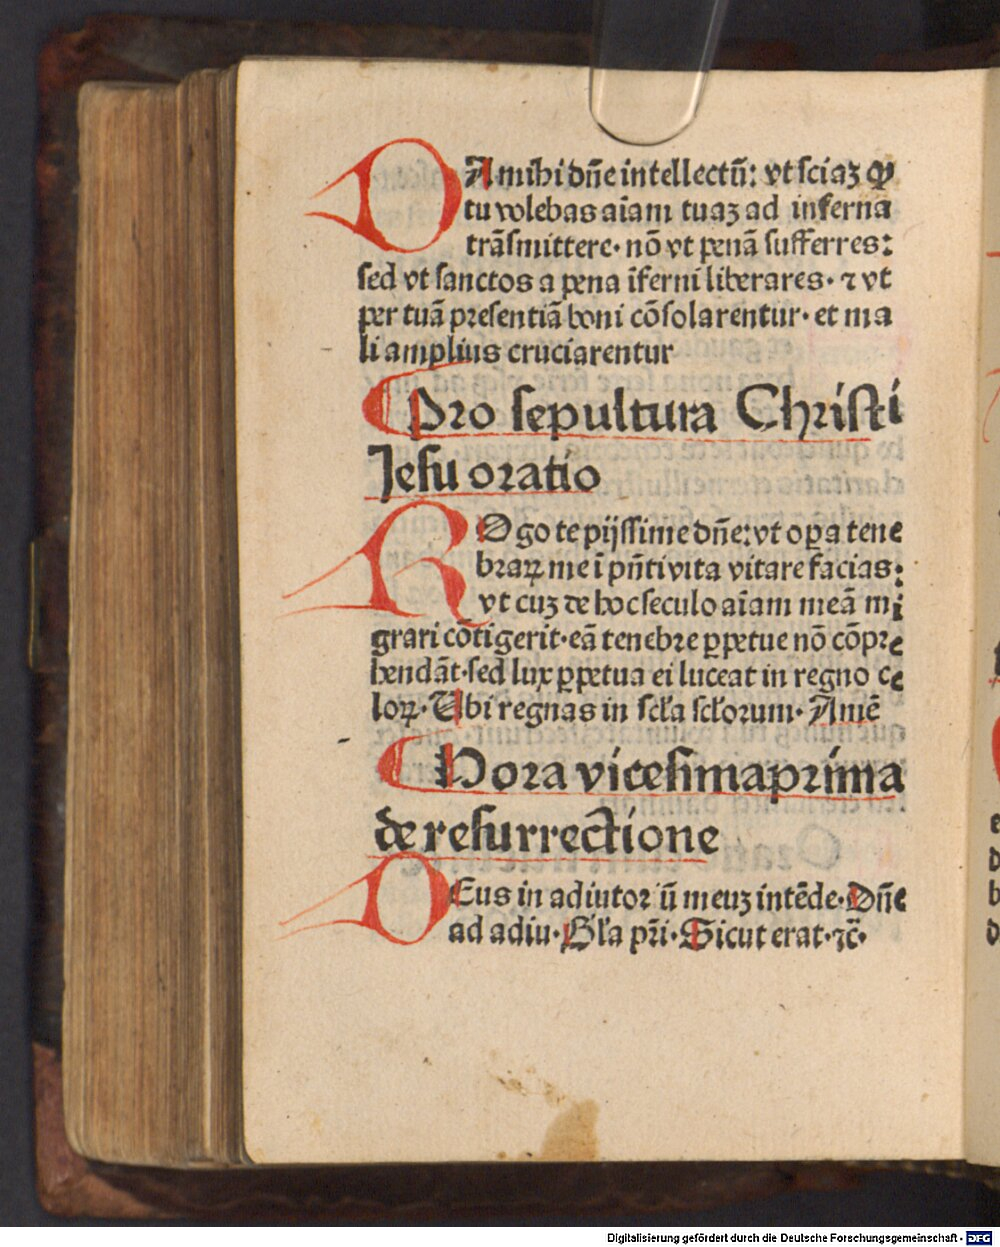 DA mihi dñe intellectũ: vt sciaꝫ ꝙ
tu volebas aīam tuaꝫ ad inferna
trāſmittere· nō vt penā ſufferres:
ſed vt ſanctos a pena īferni liberares· ⁊ vt
per tuā preſentiā boni cōſolarentur· et ma
li amplius cruciarentur
Pro ſepultura Chriſti
Jeſu oratio
ROgo te pijſſime dñe: vt oꝑa tene
braꝝ me ī pñti vita vitare facias:
vt cuꝫ de hoc ſeculo aīam meā mi
grari cōtigerit· eā tenebre ꝑpetue nō cōpre
hendāt· ſed lux ꝑpetua ei luceat in regno ce
loꝝ· Ubi regnas in ſcľa ſcľorum· Amē
Hora viceſimaprima
de reſurrectione
DEus in adiutor ũ meuꝫ intēde· Dñe
ad adiu· Gľa pr̃i· Sicut erat· ⁊c̃·
Digitalisierung gefördert durch die Deutsche Forschungsgemeinschaft - DFG